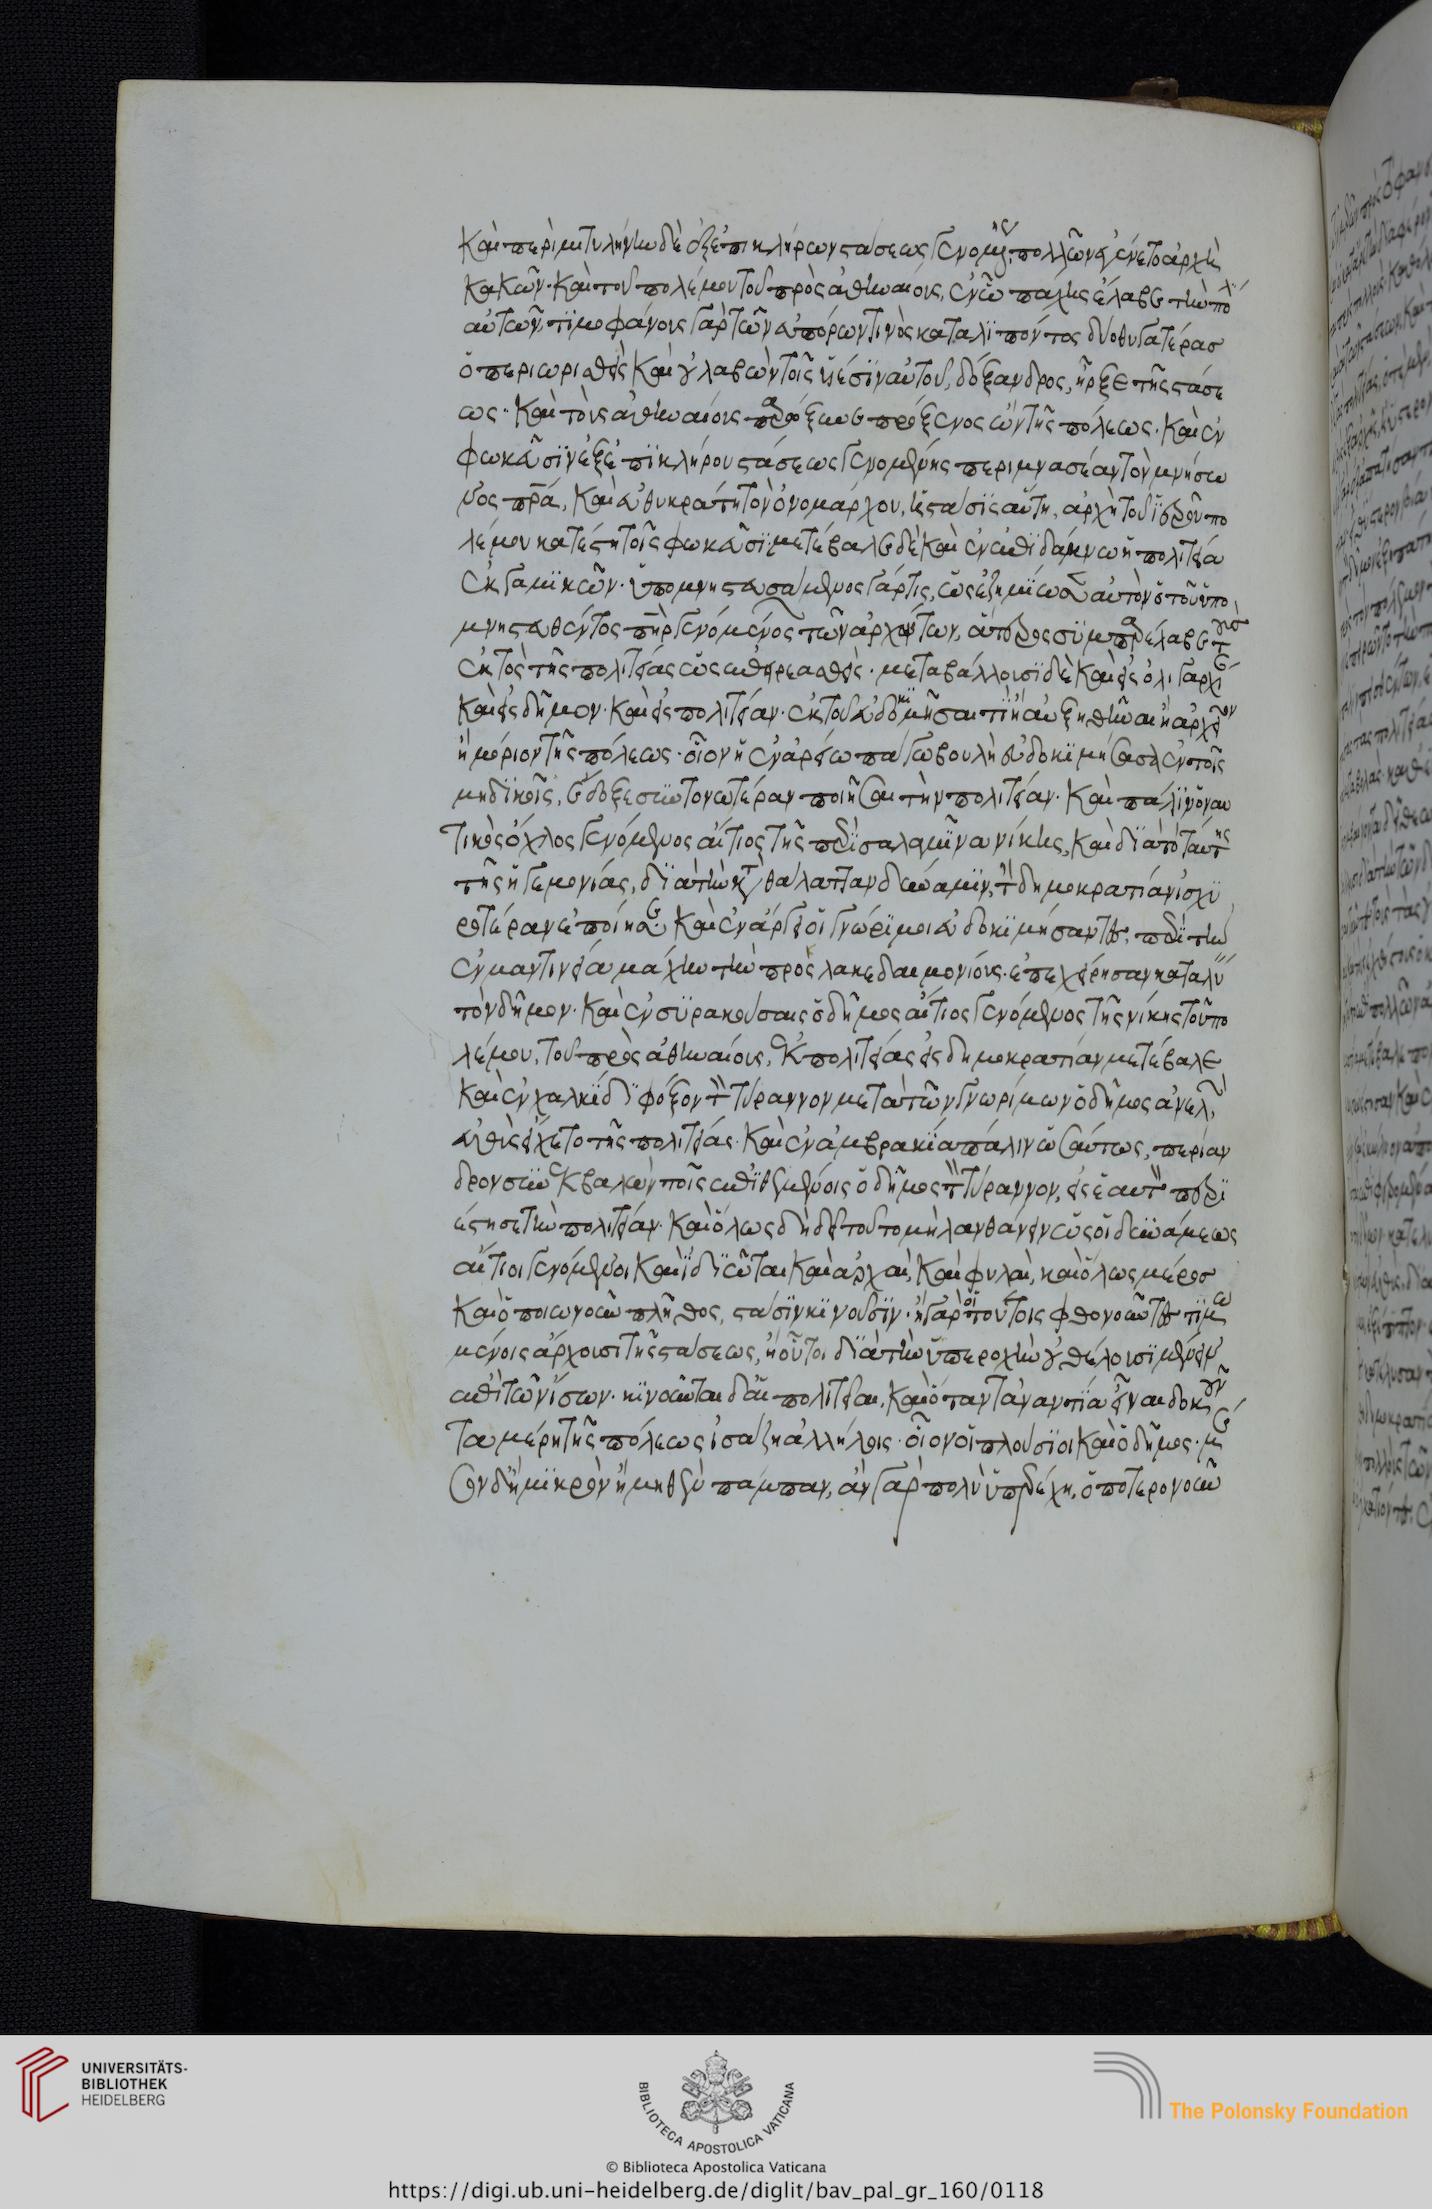 καὶ περὶ μιτυλήνην δὲ ἐξ ἐπικλήρων στάσεως γενομένης, πολλῶν ἐγένετο ἀρχὴ
κακῶν· καὶ τοῦ πολέμου τοῦ πρὸς ἀθηναίους, ἐν ᾧ πάχης ἔλαβε τὴν πόλιν
αὐτῶν, τιμοφάνους γὰρ τῶν εὐπόρων τινὸς καταλιπόντος δύο θυγατέρας
ὁ περιωρισθεὶς καὶ οὐ λαβὼν τοῖς υἱέσιν αὐτοῦ, δόξανδρος, ἦρξε τῆς στάσε
ως· καὶ τοὺς ἀθηναίους παρώξυνε πρόξενος ὢν τῆς πόλεως· καὶ ἐν
φωκεῦσιν ἐξ ἐπικλήρου στάσεως γενομένης περὶ μνασέαν τὸν μνήσω
νος πρα, καὶ εὐθυκράτη τὸν ὀνομάρχου, ἡ στάσις αὕτη, ἀρχὴ τοῦ ἱεροῦ πο
λέμου κατέστη τοῖς φωκεῦσι· μετέβαλε δὲ καὶ ἐν ἐπιδάμνῳ ἡ πολιτεία
ἐκ γαμικῶν· ὑπομνηστευσάμενος γάρ τις, ὡς ἐζημίωσεν αὐτὸν ὁ τοῦ ὑπο
μνηστευθέντος πηρ γενόμενος τῶν ἀρχόντων, ἅτερος συμπαρέλαβε τοὺς
ἐκτὸς τῆς πολιτείας ὡς ἐπηρεασθείς· μεταβάλλουσι δὲ καὶ εἰς ὀλιγαρχί
καὶ εἰς δῆμον· καὶ εἰς πολιτείαν· ἐκ τοῦ εὐδοκιμῆσαί τι ἢ αὐξηθῆναι ἢ ἀρχεῖον
ἢ μόριον τῆς πόλεως· οἷον ἡ ἐν ἀρείω πάγω βουλὴ εὐδοκιμήσασα ἐν τοῖς
μηδικοῖς, ἔδοξε συντονωτέραν ποιῆσαι τὴν πολιτείαν· καὶ πάλιν ὁ ναυ
τικὸς ὄχλος γενόμενος αἴτιος τῆς περὶ σαλαμῖνα νίκης, καὶ διὰ ταύτης
τῆς ἡγεμονίας, διὰ τὴν κατὰ θάλατταν δύναμιν, τὴν δημοκρατίαν ἰσχυ
ροτέραν ἐποίησε· καὶ ἐν ἄργει οἱ γνώριμοι εὐδοκιμήσαντες, περὶ τὴν
ἐν μαντινεία μάχην τὴν πρὸς λακεδαιμονίους· ἐπεχείρησαν καταλύειν
τὸν δῆμον· καὶ ἐν συρακούσαις ὁ δῆμος αἴτιος γενόμενος τῆς νίκης τοῦ πο
λέμου, τοῦ πρὸς ἀθηναίους, ἐκ πολιτείας εἰς δημοκρατίαν μετέβαλε
καὶ ἐν χαλκίδι φόξον τὸν τύραννον μετὰ τῶν γνωρίμων ὁ δῆμος ἀνελὼν,
εὐθὺς εἴχετο τῆς πολιτείας· καὶ ἐν ἀμβρακία πάλιν ὡσαύτως, περίαν
δρον συνεκβαλὼν τοῖς ἐπιθεμένοις ὁ δῆμος τὸν τύραννον, εἰς ἑαυτὸν περι
έστησε τὴν πολιτείαν· καὶ ὅλως δὴ δεῖ τοῦτο μὴ λανθάνειν ὡς οἱ δυνάμεως
αἴτιοι γενόμενοι καὶ ἰδιῶται καὶ ἀρχαὶ, καὶ φυλαὶ, καὶ ὅλως μέρος
καὶ ὁποιονοῦν πλῆθος, στάσιν κινοῦσιν· ἢ γὰρ οἱ τούτοις φθονοῦντες τιμω
μένοις ἄρχουσι τῆς στάσεως, ἢ οὗτοι διὰ τὴν ὑπεροχὴν οὐ θέλουσι μένειν
ἐπὶ τῶν ἴσων· κινοῦνται δ' αἱ πολιτεῖαι, καὶ ὅταν τἀναντία εἶναι δοκοῦν
τα μέρη τῆς πόλεως ἰσάζη ἀλλήλοις· οἷον οἱ πλούσιοι καὶ ὁ δῆμος· μέ
σον δ' ἢ μικρὸν ἢ μηθὲν πάμπαν, ἂν γὰρ πολὺ ὑπερέχη, ὁποτερονοῦν
UNIVERSITÄTS-
BIBLIOTHEK
HEIDELBERG
BIBLIOTECA APOSTOLICA VATICANA
The Polonsky Foundation
© Biblioteca Apostolica Vaticana
https://digi.ub.uni-heidelberg.de/diglit/bav_pal_gr_160/0118